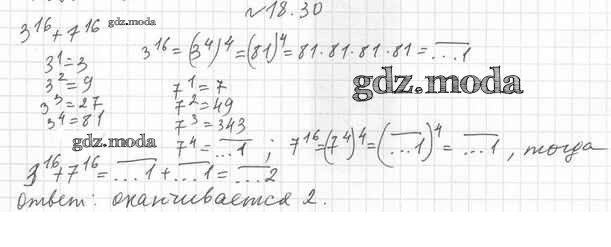 №18.30
3^16 + 7^16 gdz.moda
3^16 = (3^4)^4 = (81)^4 = 81·81·81·81 = ...1
3^1 = 3
3^2 = 9
3^3 = 27
3^4 = 81
gdz.moda
7^1 = 7
7^2 = 49
7^3 = 343
gdz.moda
7^4 = ...1 ; 7^16 = (7^4)^4 = (...1)^4 = ...1 , тогда
3^16 + 7^16 = ...1 + ...1 = ...2
ответ: оканчивается 2.